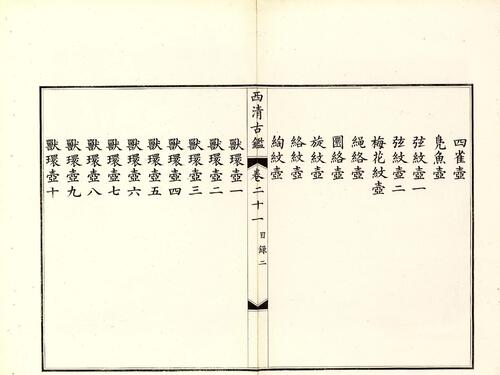 四雀壺
鳧魚壺
弦紋壺一
弦紋壺二
梅花紋壺
繩絡壺
圜絡壺
旋紋壺
絡紋壺
絢紋壺
西清古鑑
卷二十一
目錄二
獸環壺一
獸環壺二
獸環壺三
獸環壺四
獸環壺五
獸環壺六
獸環壺七
獸環壺八
獸環壺九
獸環壺十